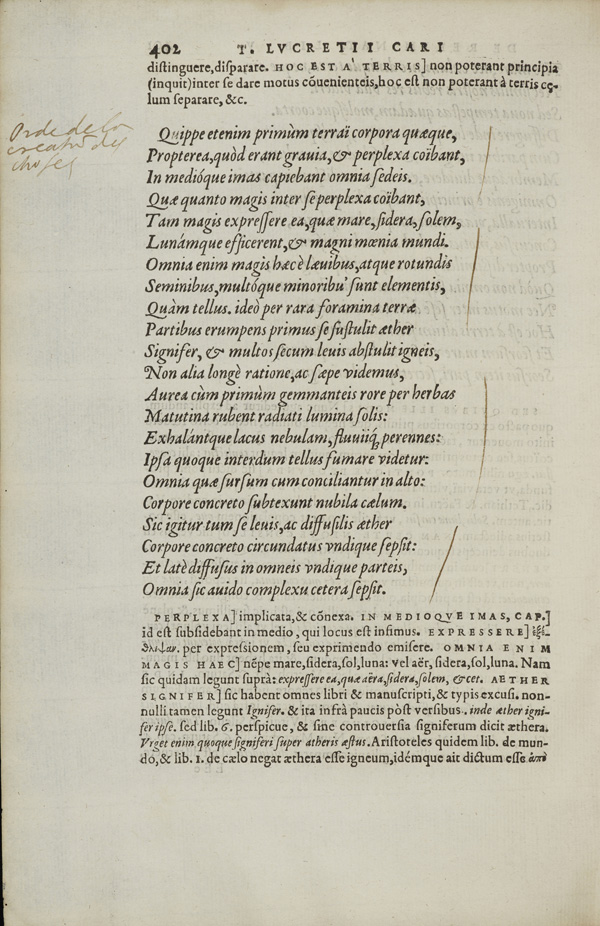 402 T. LVCRETII CARI
distinguere, disparare. HOC EST A' TERRIS] non poterant principia
(inquit) inter se dare motus cōuenienteis, hoc est non poterant à terris cę-
lum separare, &c.
Orde de la
creatiō des
choses
Quippe etenim primùm terraï corpora quæque,
Propterea, quòd erant grauia, & perplexa coïbant,
In medióque imas capiebant omnia sedeis.
Quæ quanto magis inter se perplexa coïbant,
Tam magis expressere ea, quæ mare, sidera, solem,
Lunámque efficerent, & magni mœnia mundi.
Omnia enim magis hæc è læuibus, atque rotundis
Seminibus, multóque minoribu' sunt elementis,
Quàm tellus. ideò per rara foramina terræ
Partibus erumpens primus se sustulit æther
Signifer, & multos secum leuis abstulit igneis,
Non alia longè ratione, ac sæpe videmus,
Aurea cùm primùm gemmanteis rore per herbas
Matutina rubent radiati lumina solis:
Exhalántque lacus nebulam, fluuiiq́; perennes:
Ipsa quoque interdum tellus fumare videtur:
Omnia quæ sursum cum conciliantur in alto:
Corpore concreto subtexunt nubila cælum.
Sic igitur tum se leuis, ac diffusilis æther
Corpore concreto circundatus vndique sepsit:
Et latè diffusus in omneis vndique parteis,
Omnia sic auido complexu cetera sepsit.
PERPLEXA] implicata, & cōnexa. IN MEDIOQVE IMAS, CAP.]
id est subsidebant in medio, qui locus est infimus. EXPRESSERE]
per expressionem, seu exprimendo emisere. OMNIA ENIM
MAGIS HAEC] nēpe mare, sidera, sol, luna: vel aër, sidera, sol, luna. Nam
sic quidam legunt suprà: expressere ea, quæ aëra, sidera, solem, & cet. AETHER
SIGNIFER] sic habent omnes libri & manuscripti, & typis excusi. non-
nulli tamen legunt Ignifer. & ita infrà paucis pòst versibus. inde æther igni-
fer ipse. sed lib. 6. perspicue, & sine controuersia signiferum dicit æthera.
Vrget enim quoque signiferi super ætheris æstus. Aristoteles quidem lib. de mun-
do, & lib. 1. de cælo negat æthera esse igneum, idémque ait dictum esse ἀπὸ